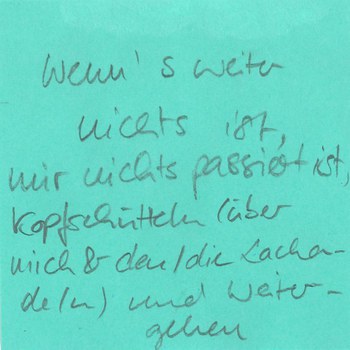 Wenn's weiter
nichts ist,
mir nichts passiert ist,
Kopfschütteln (über
mich & den/die Lachen-
de/n) und Weiter-
gehen